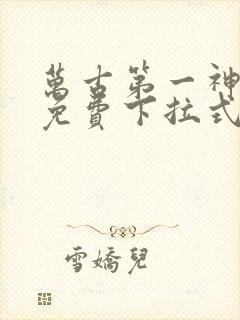 萬古第一神
免費下拉式
雪嬌兒